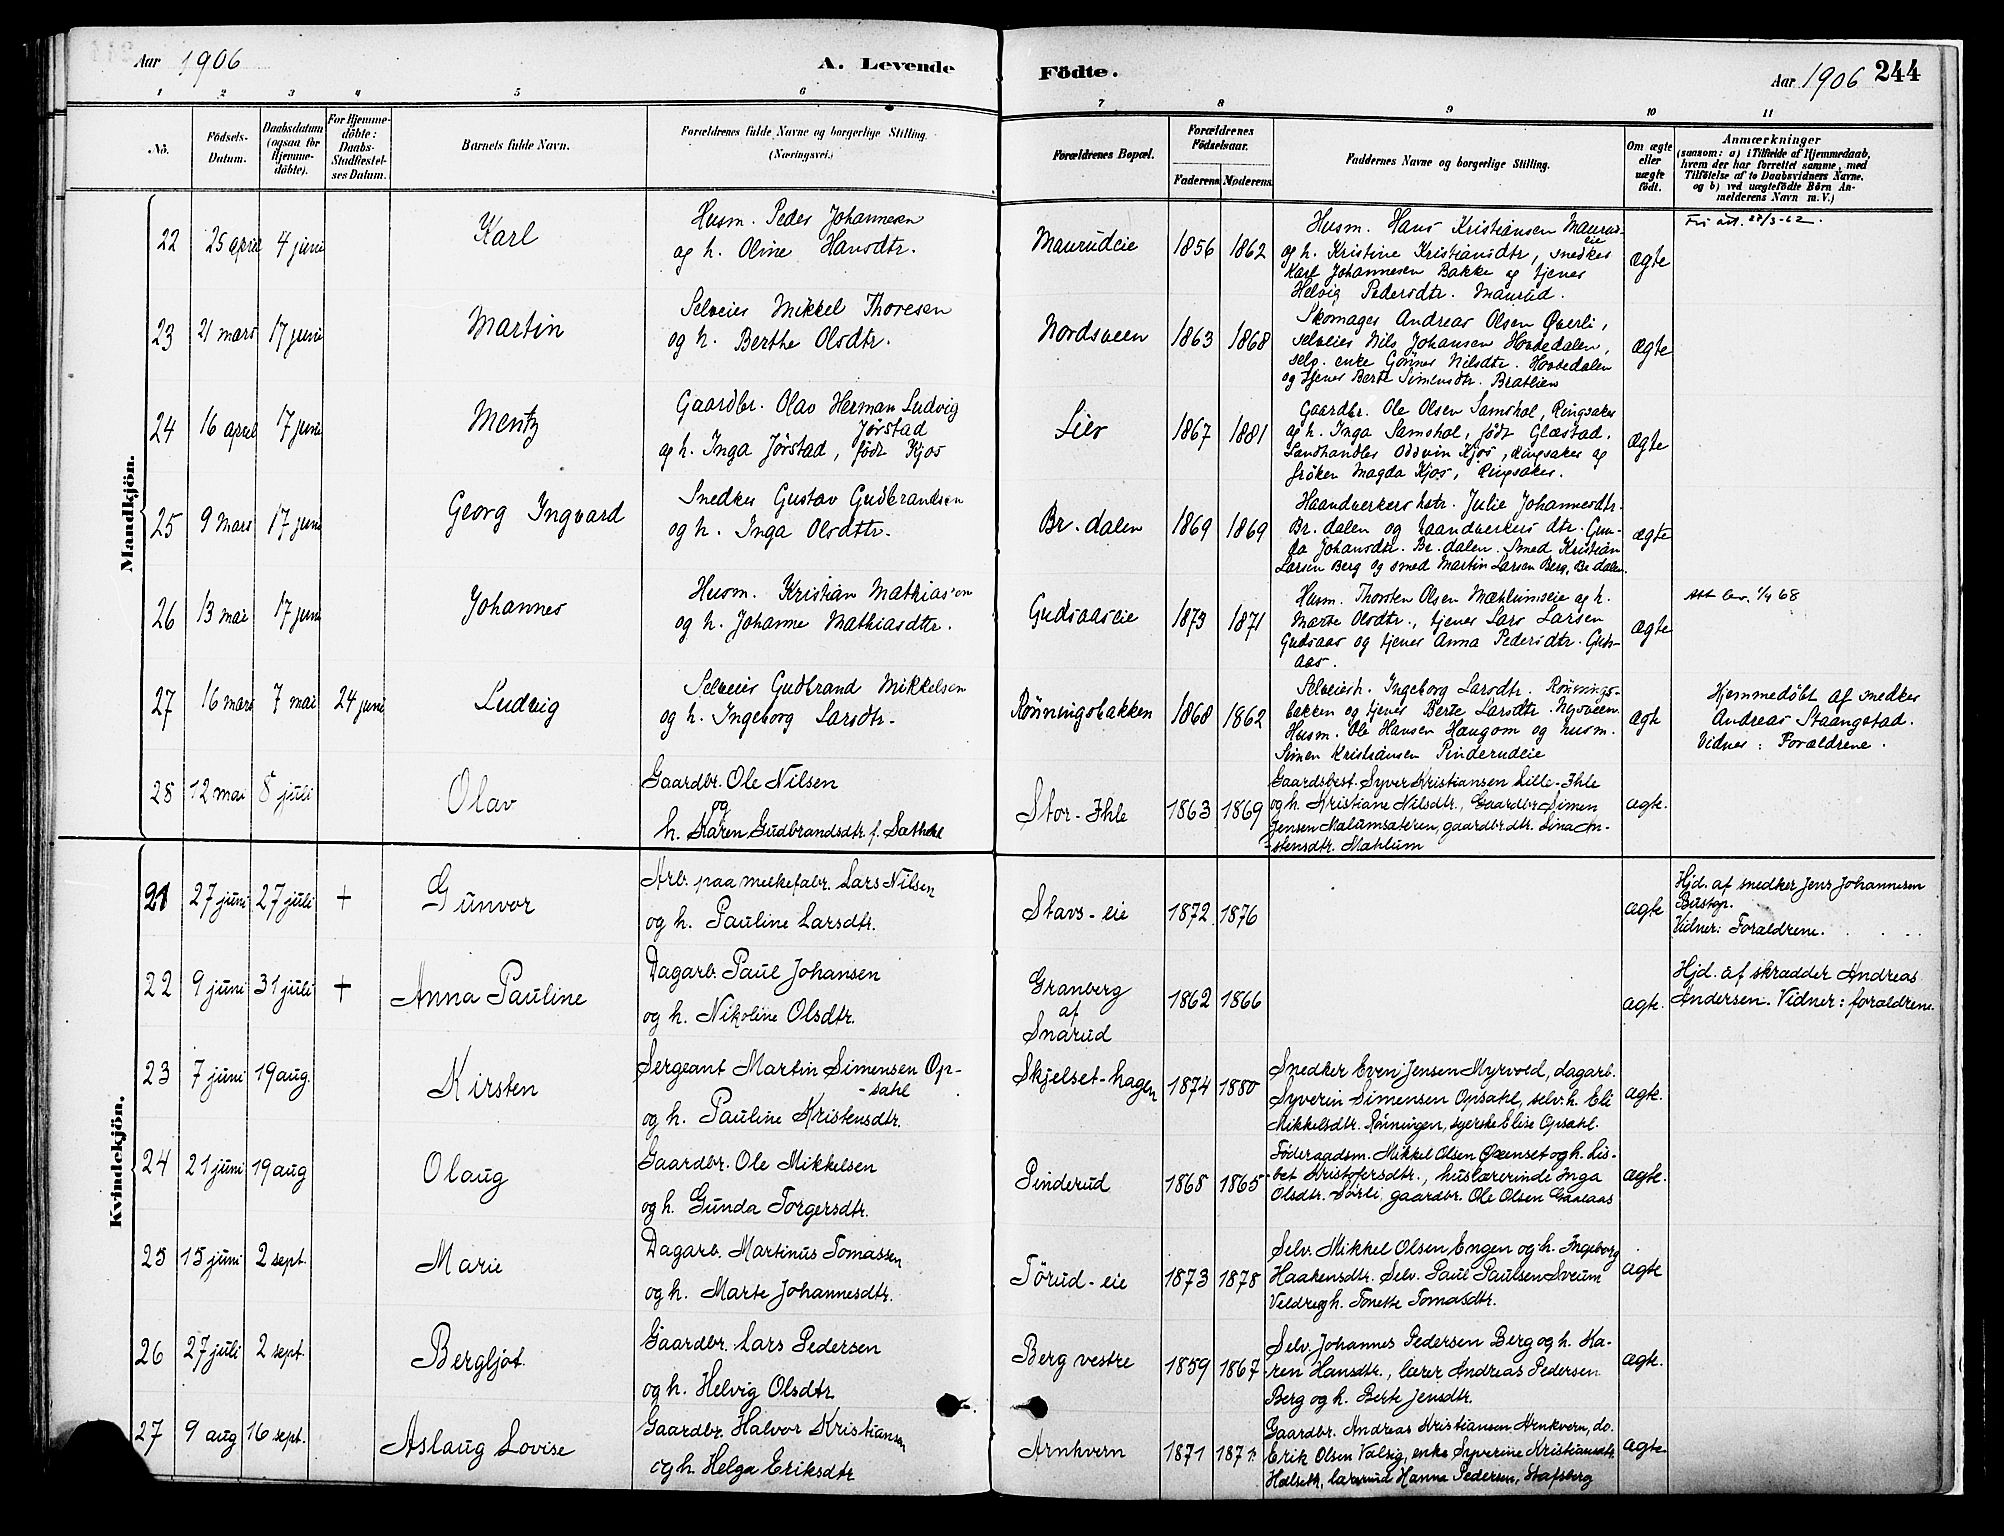 Aar 1906
A. Levende
Födte.
Aar 1906 244
1 2 3 4 5 6 7 8 9 10 11
No.
Födsels-
Datum.
Daabsdatum
(ogsaa for
Hjemme-
döbte).
For Hjemme-
döbte:
Daabs-
Stadfæstel-
ses Datum.
Barnets fulde Navn.
Forældrenes fulde Navne og borgerlige Stilling.
(Næringsvei.)
Forældrenes Bopæl.
Forældrenes
Födselsaar.
Faderens Moderens
Faddernes Navne og borgerlige Stilling.
Om ægte
eller
uægte
födt.
Anmærkninger
(saasom: a) i Tilfælde af Hjemmedaab,
hvem der har forrettet samme, med
Tilföielse af to Daabsvidners Navne,
og b) ved uægtefödte Börn An-
melderens Navn m. V.)
Mandkjön.
22 25 april 4 juni
Karl
Husm. Peder Johannesen
og h. Oline Hansdtr.
Maurudeie
1856 1862
Husm. Hans Kristiansen Maurud-
eie
og h. Kristine Kristiansdtr, snedker
Karl Johannesen Bakke og tjener
Helvig Pedersdtr. Maurud.
ægte
23 21 mars 17 juni
Martin
Selveier Mikkel Thoresen
og h. Berthe Olsdtr.
Nordsveen
1863 1868
Skomager Andreas Olsen Øverli,
selveier Nils Johansen Hovedalen,
selv. enke Gønner Nilsdtr. Hovedalen
og tjener Berte Simensdtr. Bratlien
ægte
24 16 april 17 juni
Mentz
Gaardbr. Olav Herman Ludvig
Jørstad
og h. Inga Jørstad, født Kjos
Lier
1867 1881
Gaardbr. Ole Olsen Samshol, Ringsaker
og h. Inga Samshol, født Glæstad.
Landhandler Oddvin Kjos, Ringsaker og
frøken Magda Kjos, Ringsaker.
ægte
25 9 mars 17 juni
Georg Ingvard
Snedker Gustav Gudbrandsen
og h. Inga Olsdtr.
Br. dalen
1869 1869
Haandverkers hstr. Julie Johannesdtr.
Br. dalen og haandverkers dtr. Gun-
da Johansdtr. Br. dalen. Smed Kristian
Larsen Berg og smed Martin Larsen Berg, Br. dalen.
ægte
26 13 mai 17 juni
Johannes
Husm. Kristian Mathiasen
og h. Johanne Mathiasdtr.
Gudsaaseie
1873 1871
Husm. Thorsten Olsen Mæhlumseie og h.
Marte Olsdtr., tjener Lars Larsen
Gudsaas og tjener Anna Pedersdtr. Guds-
aas.
ægte
Att lev. 1/4 68
27 16 mars 7 mai 24 juni
Ludvig
Selveier Gudbrand Mikkelsen
og h. Ingeborg Larsdtr.
Rønningsbakken
1868 1862
Selveiersh. Ingeborg Larsdtr. Rønnings-
bakken og tjener Berte Larsdtr. Nysveen.
Husm. Ole Hansen Haugom og husm.
Simen Kristiansen Pinderudeie
ægte
Hjemmedøbt af snedker
Andreas Staangstad.
Vidner: Forældrene.
28 12 mai 8 juli
Olav
Gaardbr. Ole Nilsen
og
h. Karen Gudbrandsdtr. f.
Stor-Ihle
1863 1869
Gaardsbest. Syver Kristiansen Lille-Ihle
og h. Kristiane Nilsdtr., Gaardbr. Simen
Jensen Mælumsæteren, gaardbr.dtr. Lina An-
stensdtr. Mæhlum
ægte.
Kvindekjön.
21 27 juni 27 juli +
Gunvor
Arb. paa melkefabr. Lars Nilsen
og h. Pauline Larsdtr.
Stavs-eie
1872 1876
ægte
Hjd. af snedker Jens Johannesen
Bustop.
Vidner: Forældrene.
22 9 juni 31 juli +
Anna Pauline
Dagarb. Paul Johansen
og h. Nikoline Olsdtr.
Granberg
af
Snarud
1862 1866
ægte.
Hjd. af skrædder Andreas
Andersen. Vidner: forældrene.
23 7 juni 19 aug.
Kirsten
Sergeant Martin Simensen Op-
-sahl
og h. Pauline Kristensdtr.
Skjelset-hagen
1874 1880
Snedker Even Jensen Myrvold, dagarb.
Syverin Simensen Opsahl, selv. h. Eli
Mikkelsdtr. Rønningen, syerske Elise Opsahl.
ægte.
24 21 juni 19 aug
Olaug
Gaardbr. Ole Mikkelsen
og h. Gunda Torgersdtr.
Pinderud
1868 1865
Føderaadsm. Mikkel Olsen Øvenset og h. Lis-
bet Kristofersdtr., huslærerinde Inga
Olsdtr. Sørli, gaardbr. Ole Olsen Gaalaas
ægte.
25 15 juni 2 sept.
Marie
Dagarb. Martinus Tomassen
og h. Marte Johannesdtr.
Tørud-eie
1873 1878
Selv. Mikkel Olsen Engen og h. Ingeborg
Haakensdtr. Selv. Paul Paulsen Sveum
Veldre og h. Tonette Tomasdtr.
ægte.
26 27 juli 2 sept.
Bergljot
Gaardbr. Lars Pedersen
og h. Helvig Olsdtr
Berg vestre
1859 1867
Selv. Johannes Pedersen Berg og h. Ka-
ren Hansdtr., lærer Andreas Pedersen
Berg og h. Berte Jensdtr.
ægte.
27 9 aug 16 sept.
Aslaug Lovise
Gaardbr. Halvor Kristiansen
og h. Helga Eriksdtr
Arnkvern
1871 1871
Gaardbr. Andreas Kristiansen Arnkvern, do.
Erik Olsen Valsig, enke Syverine Kristiansdtr.
Hælseth, Hanna Pedersen, Stafsberg
ægte.